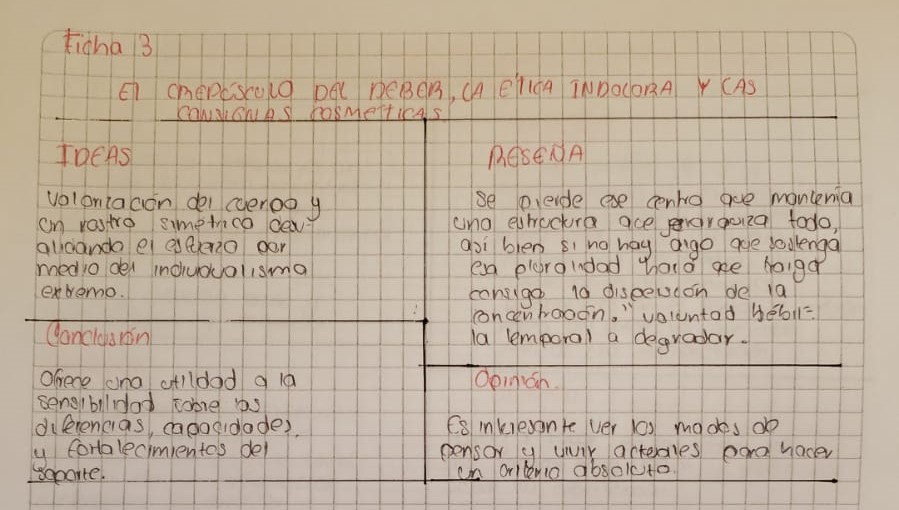 Ficha 3
El CREPÚSCULO DEL DEBER, LA ETICA INDOLORA Y LAS
CONSIGNAS COSMETICAS
IDEAS
Valorización del cuerpo y
un rostro simétrico
el esfuerzo por
medio del individualismo
extremo.
Conclusión
Ofrece una utilidad a la
sensibilidad sobre las
diferencias, capacidades,
y fortalecimientos del
soporte.
RESEÑA
Se pierde ese centro que mantenia
una estructura que jerarquiza todo,
así bien si no hay algo que sostenga
esa pluralidad hará que traiga
consigo la dispersión de la
concentración. "voluntad débil=
la temporal a degradar.
Opinión
Es interesante ver los modos de
pensar y vivir actuales para hacer
un criterio absoluto.